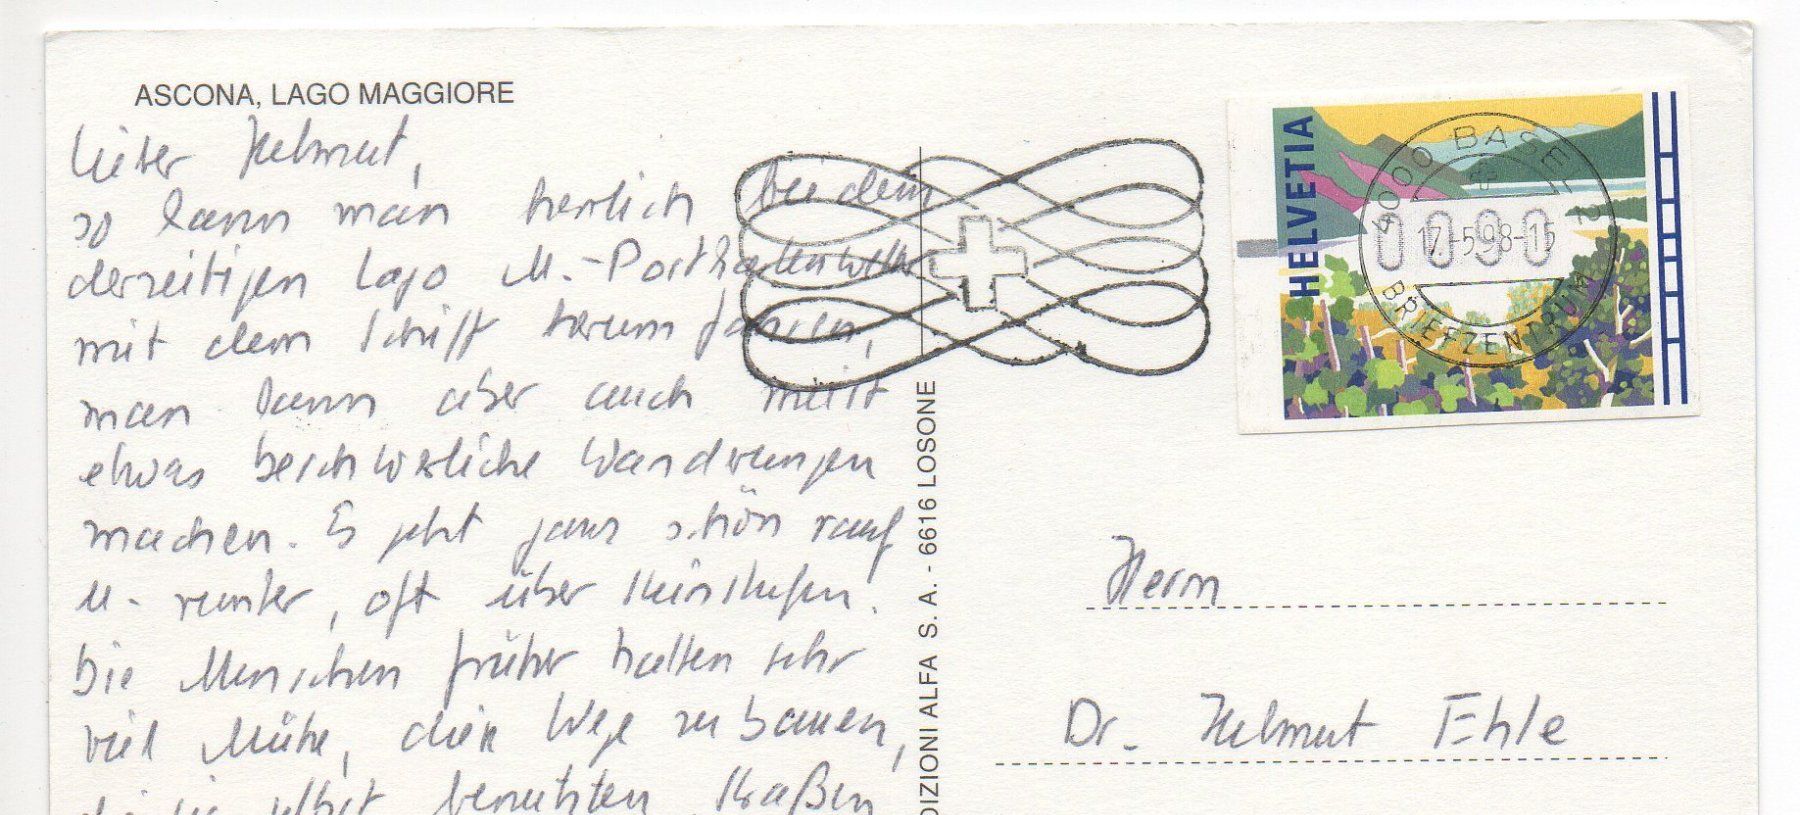 ASCONA, LAGO MAGGIORE
Lieber Helmut,
so kann man herrlich bei dem
derzeitigen Lago M.-Postkartenwetter
mit dem Schiff herum fahren,
man kann aber auch meist
etwas beschwerliche Wandrungen
machen. Es geht ganz schön rauf
u. runter, oft über Steinstufen.
Die Menschen früher hatten sehr
viel Mühe, diese Wege zu bauen,
die sie selbst benutzten. Straßen
EDIZIONI ALFA S. A. - 6616 LOSONE
HELVETIA
0090
4000 BASEL 2
17.-5.98-15
BRIEFZENTRUM
Herrn
Dr. Helmut Ehle